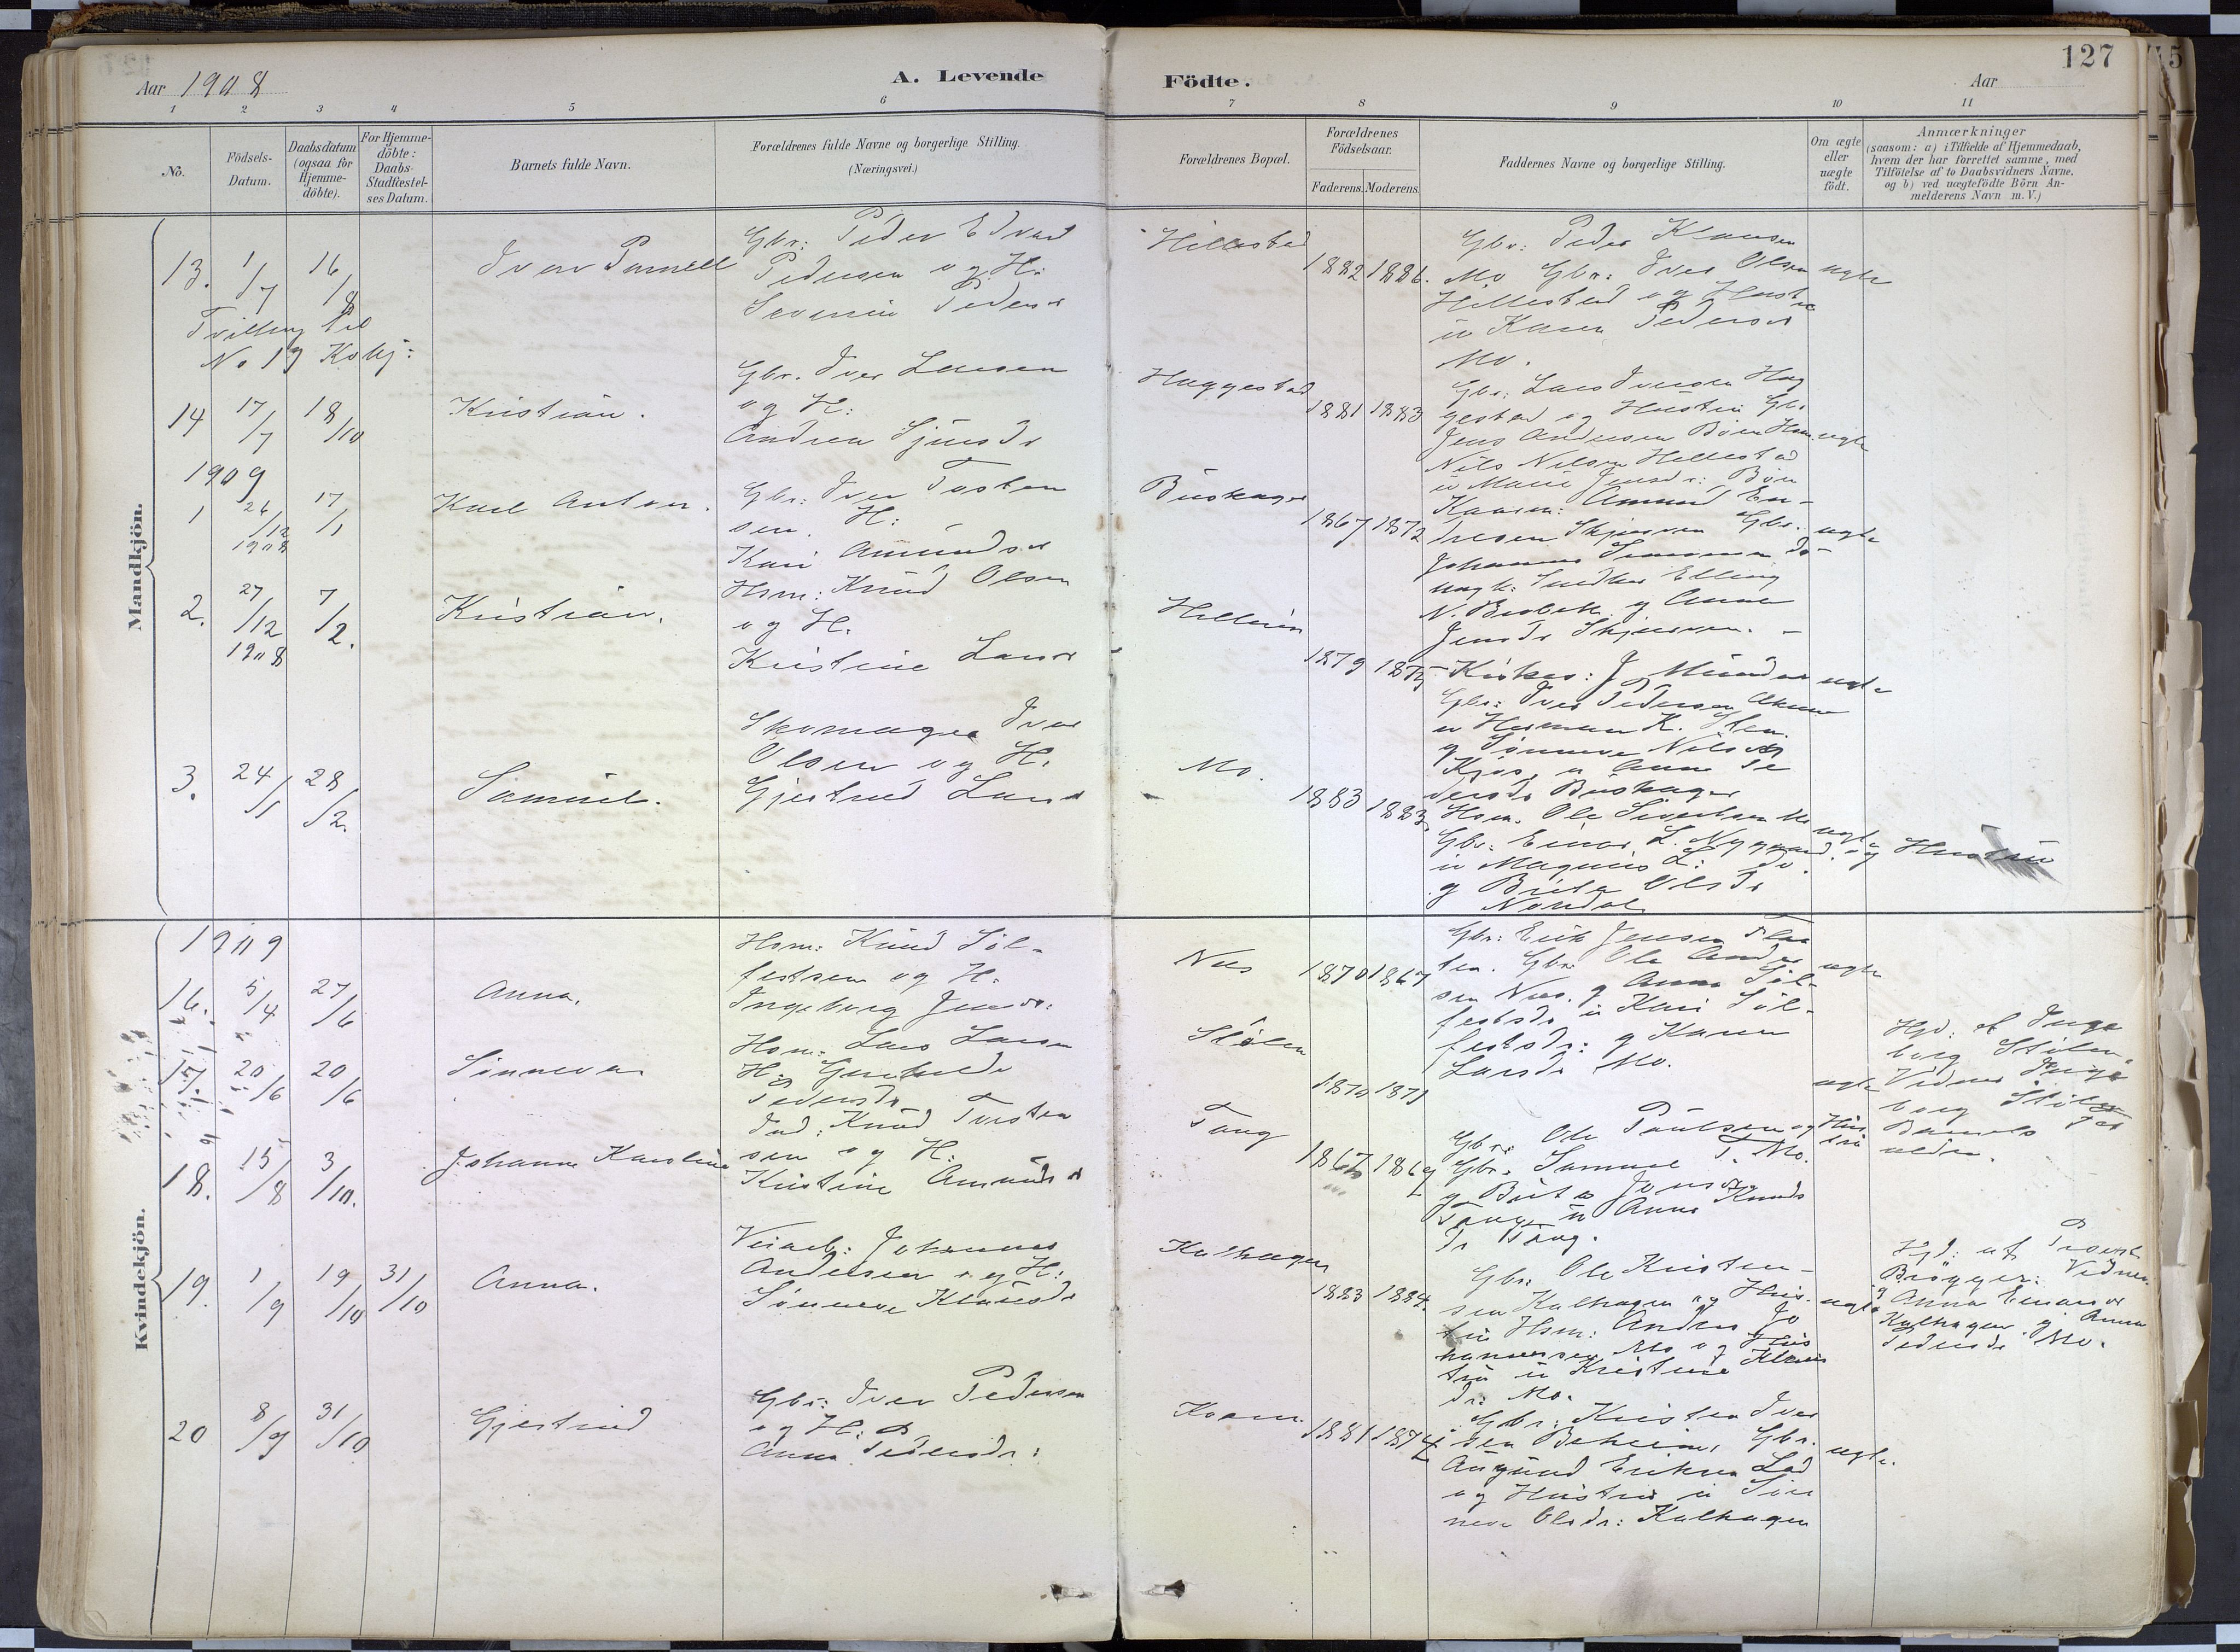 127
Aar 1908
A. Levende Födte.
Aar
1 2 3 4 5 6 7 8 9 10 11
No.
Födsels-
Datum.
Daabsdatum
(ogsaa for
Hjemme-
döbte).
For Hjemme-
döbte:
Daabs-
Stadfæstel-
ses Datum.
Barnets fulde Navn.
Forældrenes fulde Navne og borgerlige Stilling.
(Næringsvei.)
Forældrenes Bopæl.
Forældrenes
Födselsaar.
Faderens. Moderens.
Faddernes Navne og borgerlige Stilling.
Om ægte
eller
uægte
födt.
Anmærkninger
(saasom: a) i Tilfælde af Hjemmedaab,
hvem der har forrettet samme, med
Tilföielse af to Daabsvidners Navne,
og b) ved uægtefödte Börn An-
melderens Navn m. V.)
Mandkjön.
13. 1/7 16/8
Tvilling til
No 19 Kvkj:
Iver Parnell
Gbr: Peder Edvard
Pedersen og H:
Severine Pedersd
Hillestad
1882 1886.
Gbr: Peder Klausen
Mo Gbr: Iver Olsen
Hillestad og Hustru
u Karen Pedersd
Mo.
ægte
14 17/7 18/10
Kristian.
Gbr. Iver Larsen
og H:
Andrea Sjursdr
Haggestad
1881 1883
Gbr: Lars Iversen Hag
gestad og Hustru Gbr
Jens Andersen Böen
Nils Nilsen Hillestad
u Marie Jensdr: Böen
ægte
1909
1 26/12 1908 17/1
Karl Anton.
Gbr: Iver Torsten
sen. H:
Kari Amundsd
Buskager
1867 1872
Amund En-
dresen Skjerven Gbr.
Johannes
ungk: Elling
N. og Anna
Jensdr Skjerven. -
ægte
2. 27/12 1908 7/2.
Kristian.
Hsm: Knud Olsen
og H.
Kristine Larsd
1879
Kirkes: J
Gbr: Iver Pedersen
u Herman K.
g Sönneva Nilsd
Kjos, u Anna Pe
dersdr Buskager
ægte
3. 24/1 28/2.
Samuel.
Skomager Iver
Olsen og H.
Gjertrud Larsd
Mo.
1883 1883
Hsm. Ole Sivertsen Mo
Gbr: Einar L. Nygaard. og Hustru
u Magnus L: do.
g Brita Olsdr
Nondal
ægte
Kvindekjön.
1909
16. 5/4 27/6
Anna.
Hsm: Knud Söl-
festsen og H:
Ingeborg Jensdr:
Nes
1870 1867
Gbr: Erik Jensen Flaa
ten. Gbr Ole Ander
sen Nes. g Anna Söl-
festsdr u Kari Söl-
festsdr: g Karen
Larsdr Mo.
ægte
17. 20/6 20/6
Sönneva
Hsm: Lars Larsen
H:
Pedersdr
Stölen
1870 1871
ægte
Hjd: af Inge
borg Stölen.
Vidner Inge
borg Stölen
Barnets Far
18. 15/8 3/10.
Johanna Karoline
Ind: Knud Torsten
sen og H:
Kristine Amundsd
Tang
1867 1869
Gbr: Ole Paulsen og Hus
tru
Gbr. Samuel T. Mo.
g Brita Jonsd
Tang u Anna Knuds
dr Tang.
19. 1/9 19/10 31/10
Anna.
Veiarb: Johannes
Andersen og H:
Sönneva Klausdr
Kalhagen
1883 1884.
Gbr: Ole Kristen-
sen Kalhagen og Hus-
tru Hsm: Anders Jo
hannessen Mo og Hus
tru u Kristine Klaus
dr: Mo.
ægte
Hjd: af Provst
Brögger: Vidner
Anna Einarsd
Kalhagen g Anna
Pedersdr Mo.
20 8/9 31/10
Gjertrud
Gbr: Iver Pedersen
og H:
Anna Pedersdr:
Kvam.
1881 1874
Gbr: Kristen Iver
sen Gbr.
Amund Eriksen Lad
og Hustru u Sön
neva Olsdr: Kalhagen
ægte.